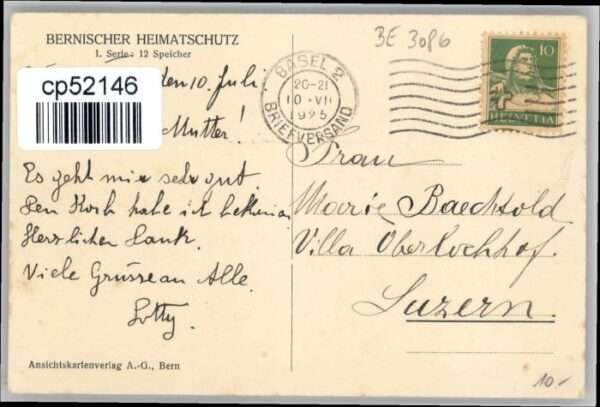 BERNISCHER HEIMATSCHUTZ
1. Serie: 12 Speicher
BE 3086
cp52146
den 10. Juli
Mutter!
Es geht mir sehr gut.
Den Korb habe ich bekommen
Herzlichen Dank.
Viele Grüsse an Alle
Lotty
Ansichtskartenverlag A.-G., Bern
BASEL 2
20-21
10.VII
1925
BRIEFVERSAND
10
HELVETIA
Frau
Marie Baechtold
Villa Oberlochhof.
Luzern.
10.-